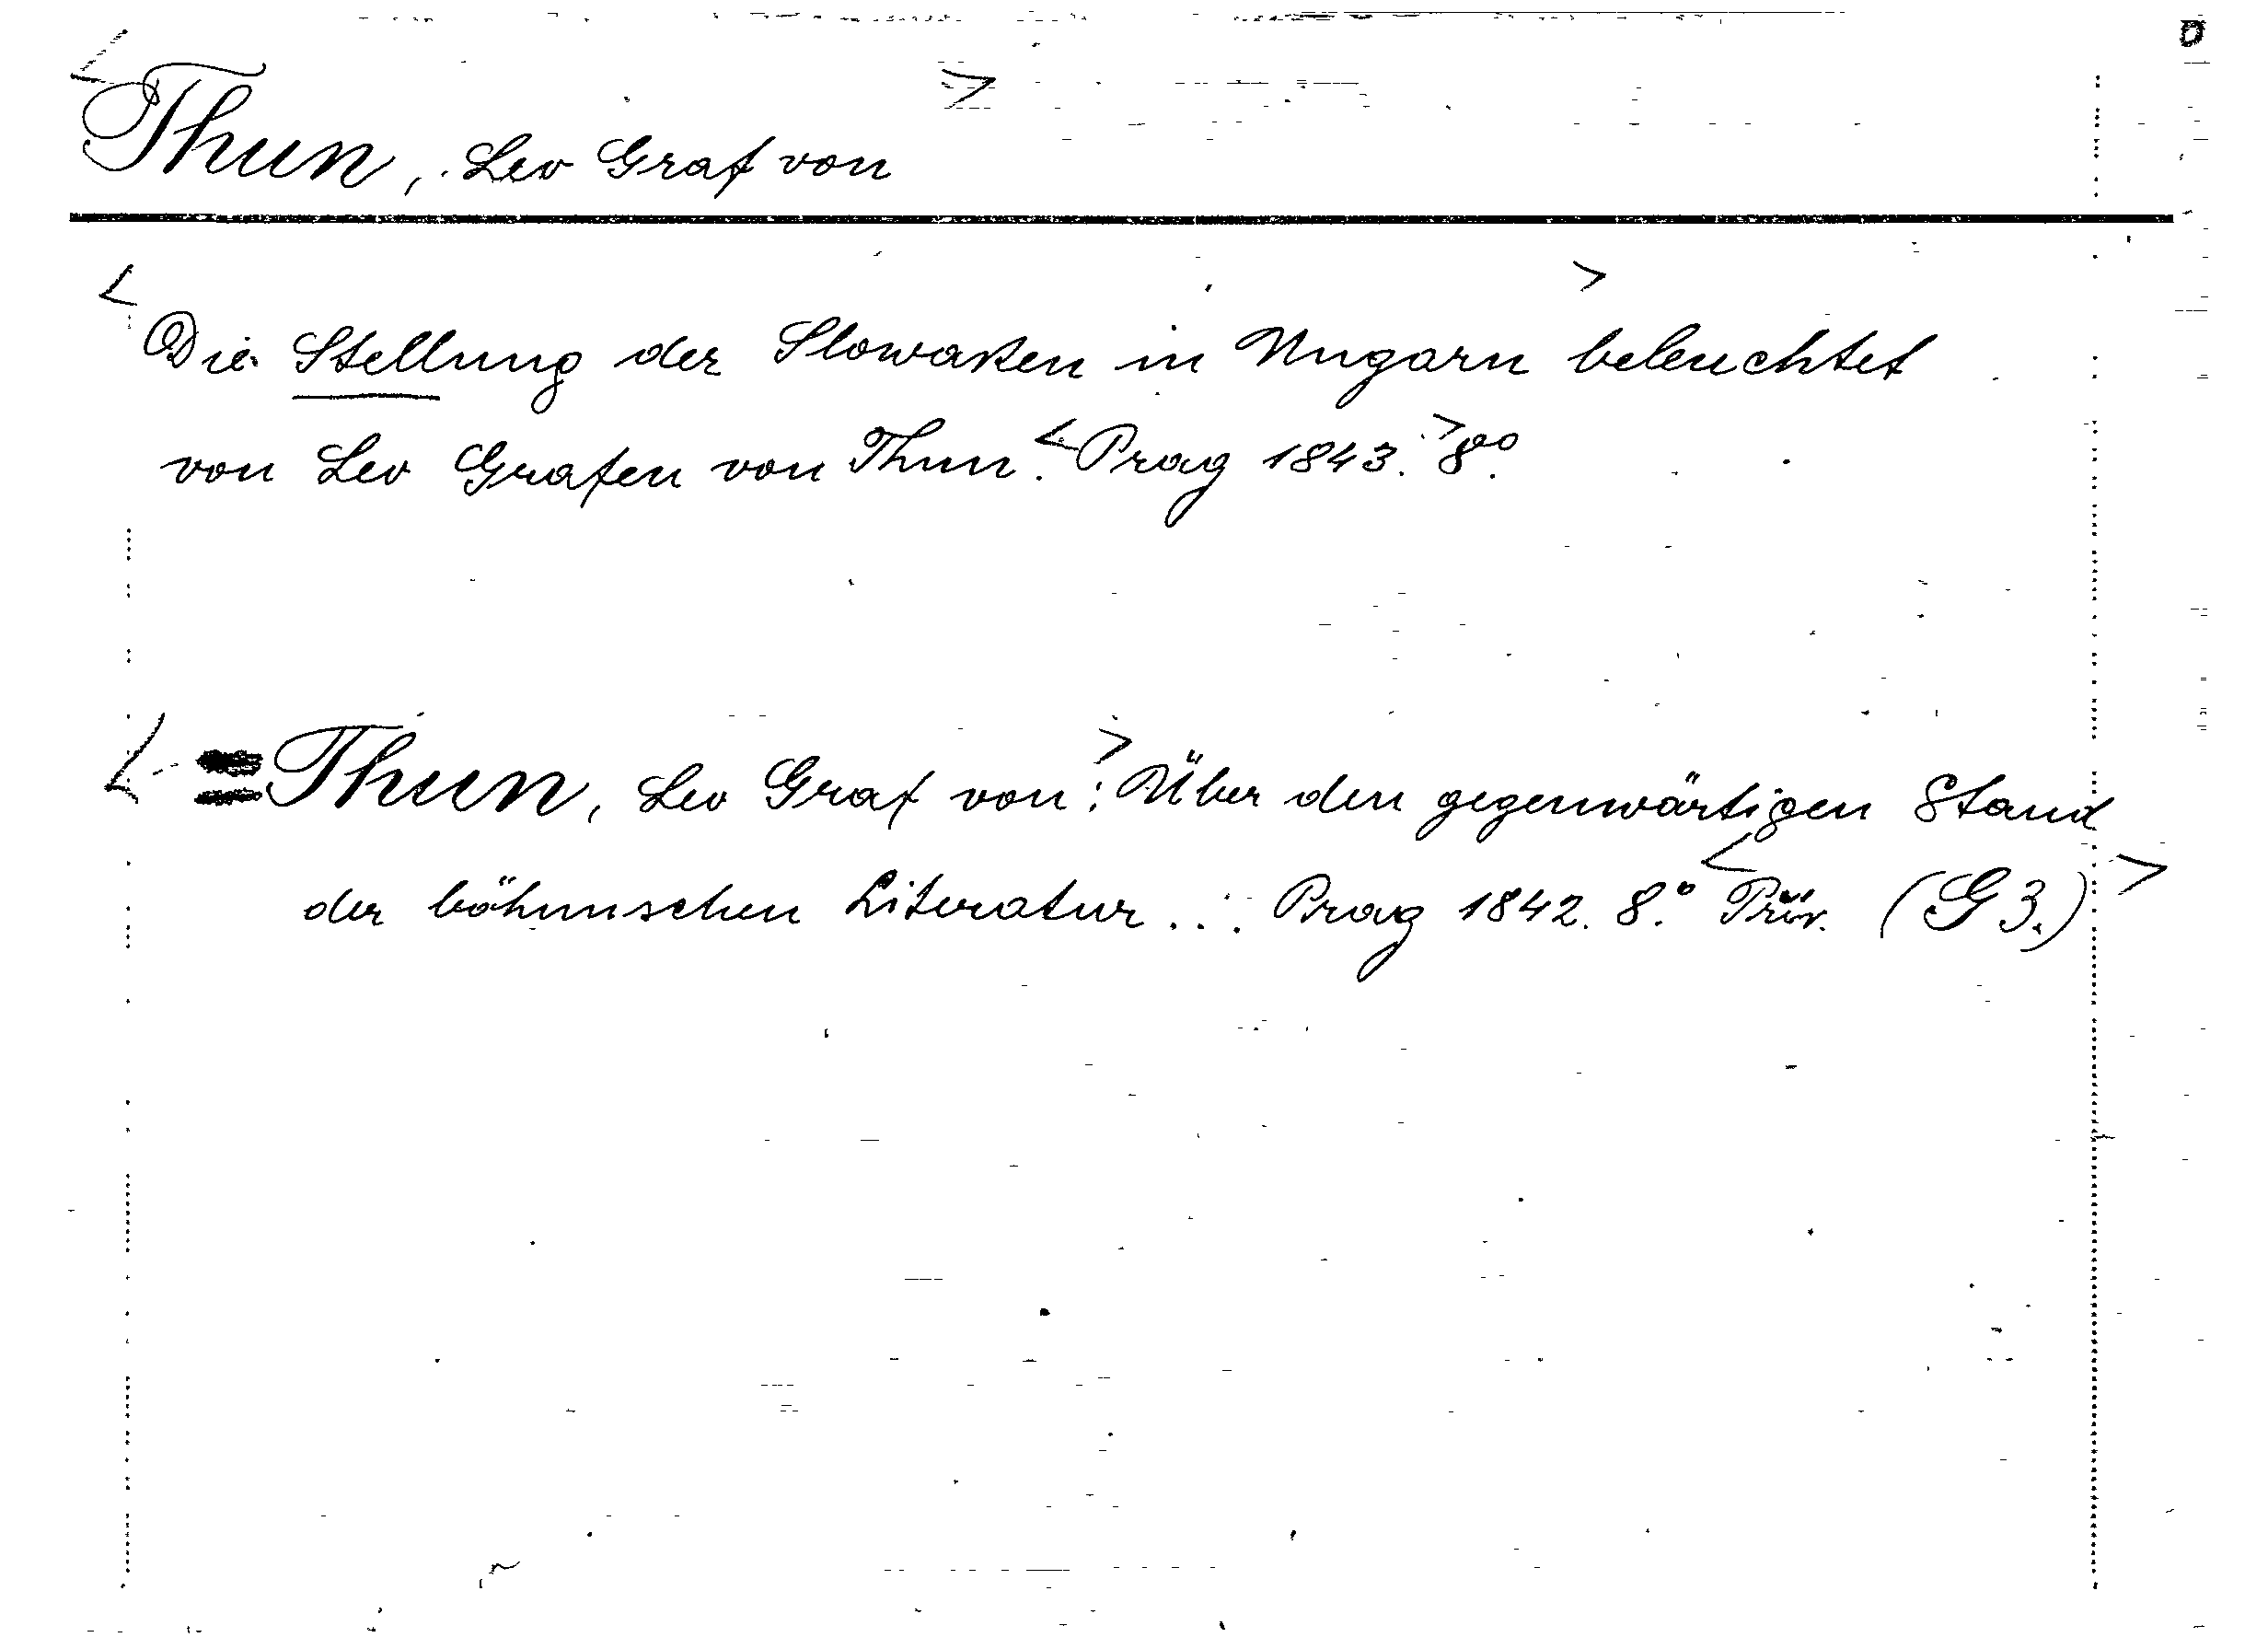 Thun, Leo Graf von
Die Stellung der Slowaken in Ungarn beleuchtet
von Leo Grafen von Thun. Prag 1843. 8º.
= Thun, Leo Graf von: Über den gegenwärtigen Stand
der böhmischen Literatur... Prag 1842. 8.º (G 3.)